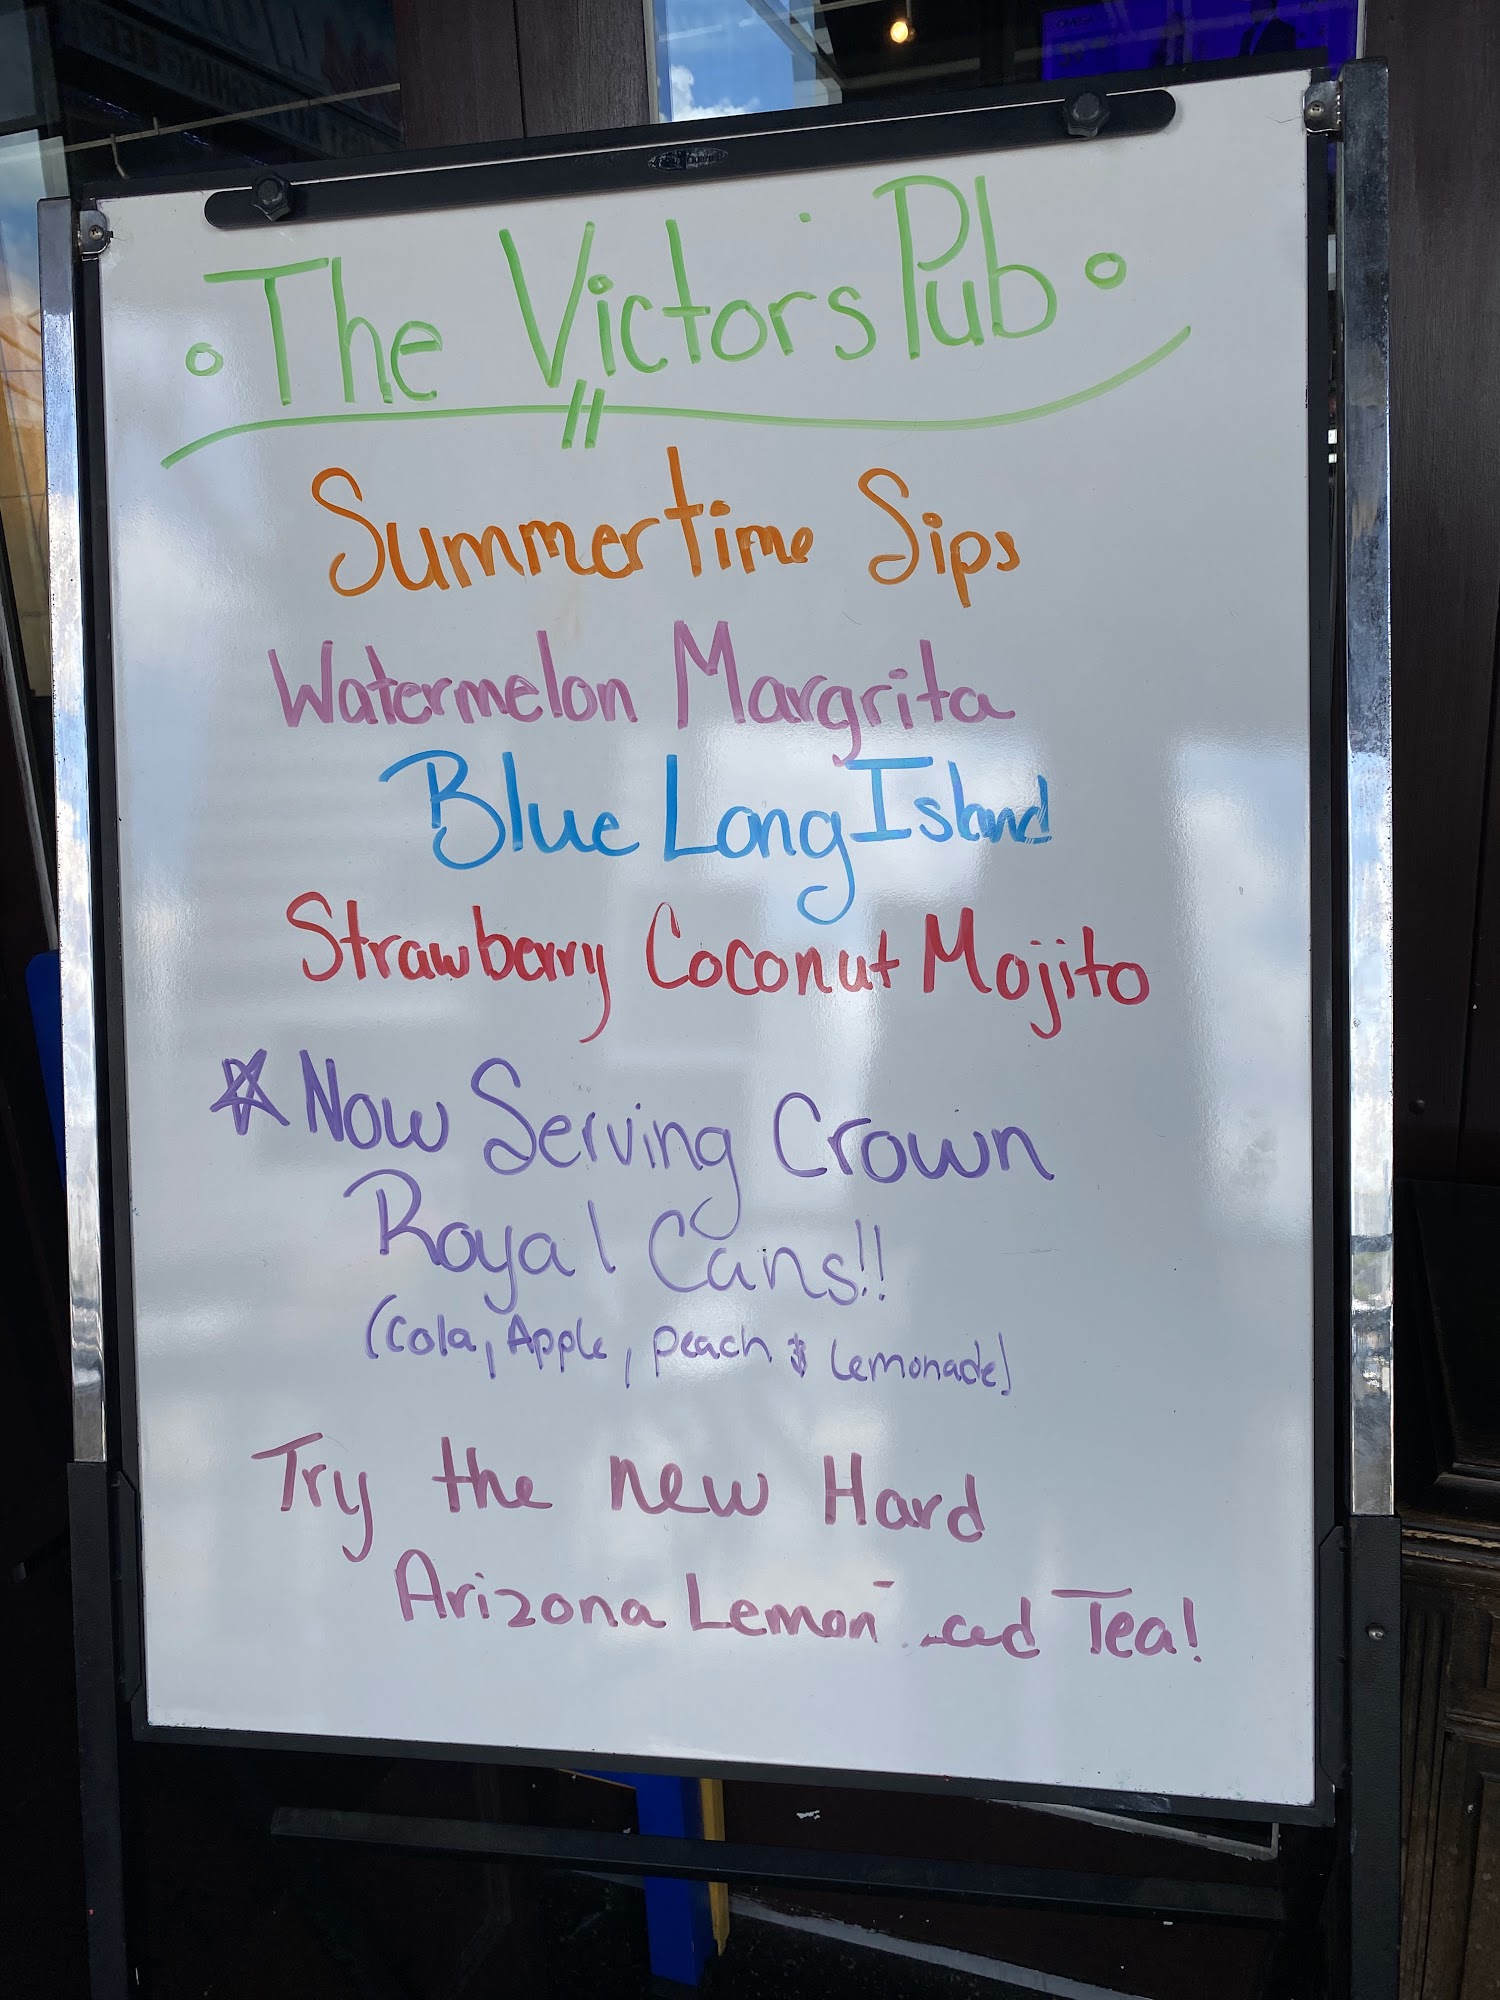 The Victor's Pub
Summertime Sips
Watermelon Margrita
Blue Long Island
Strawberry Coconut Mojito
Now Serving Crown
Royal Cans!!
(Cola, Apple, peach & Lemonade)
Try the new Hard
Arizona Lemon ced Tea!